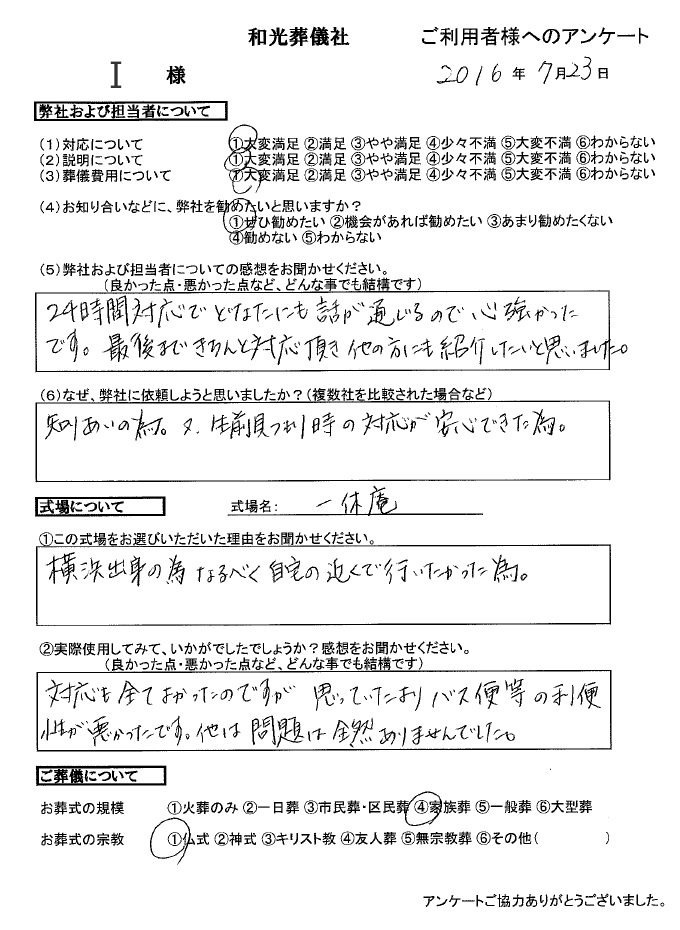 和光葬儀社 ご利用者様へのアンケート
I 様 2016 年 7月23日
弊社および担当者について
(1)対応について ①大変満足 ②満足 ③やや満足 ④少々不満 ⑤大変不満 ⑥わからない
(2)説明について ①大変満足 ②満足 ③やや満足 ④少々不満 ⑤大変不満 ⑥わからない
(3)葬儀費用について ①大変満足 ②満足 ③やや満足 ④少々不満 ⑤大変不満 ⑥わからない
(4)お知り合いなどに、弊社を勧めたいと思いますか？
①ぜひ勧めたい ②機会があれば勧めたい ③あまり勧めたくない
④勧めない ⑤わからない
(5)弊社および担当者についての感想をお聞かせください。
(良かった点・悪かった点など、どんな事でも結構です)
24時間対応でどなたにも話が通じるので心強かった
です。最後まできちんと対応頂き他の方にも紹介したいと思いました。
(6)なぜ、弊社に依頼しようと思いましたか？(複数社を比較された場合など)
知りあいの為。又、生前見つもり時の対応が安心できた為。
式場について 式場名: 一休庵
①この式場をお選びいただいた理由をお聞かせください。
横浜出身の為なるべく自宅の近くで行いたかった為。
②実際使用してみて、いかがでしたでしょうか？感想をお聞かせください。
(良かった点・悪かった点など、どんな事でも結構です)
対応も全てよかったのですが 思っていたよりバス便等の利便
性が悪かったです。他は問題は全然ありませんでした。
ご葬儀について
お葬式の規模 ①火葬のみ ②一日葬 ③市民葬・区民葬 ④家族葬 ⑤一般葬 ⑥大型葬
お葬式の宗教 ①仏式 ②神式 ③キリスト教 ④友人葬 ⑤無宗教葬 ⑥その他( )
アンケートご協力ありがとうございました。